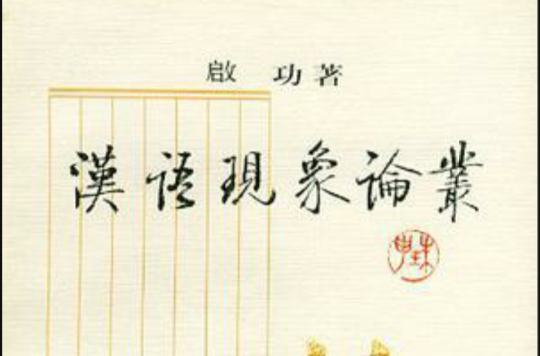 啟功著
漢語現象論叢